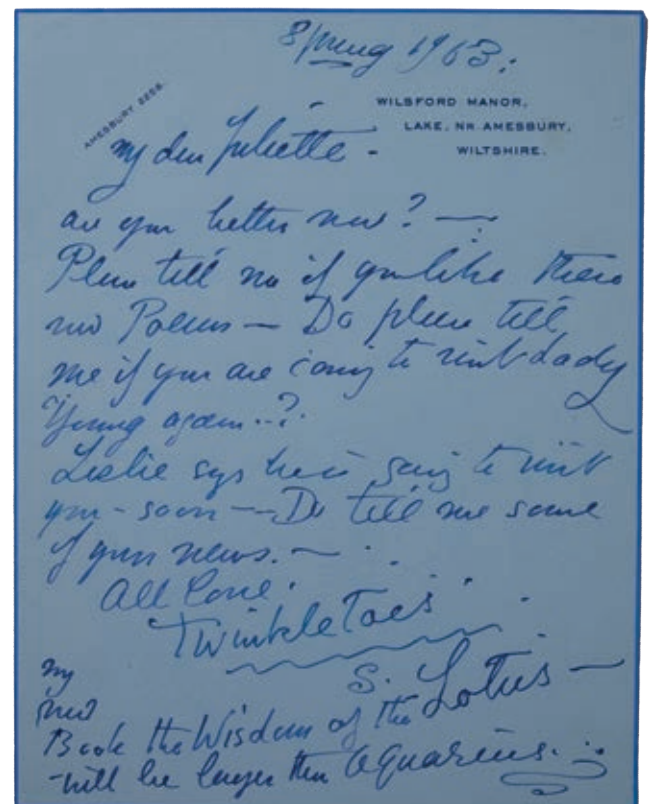 Spring 1963.
AMESBURY 2256.
WILSFORD MANOR,
LAKE, NR AMESBURY,
WILTSHIRE.
My dear Juliette -
are you better now? —
Please tell me if you like these
new Poems — Do please tell
me if you are coming to visit Lady
Young again..?
Leslie says he is going to visit
you - soon — Do tell me some
of your news. —
All Love.
Twinkle Toes
S. Lotus —
My
new
Book the Wisdom of the
- will be longer than Aquarius.